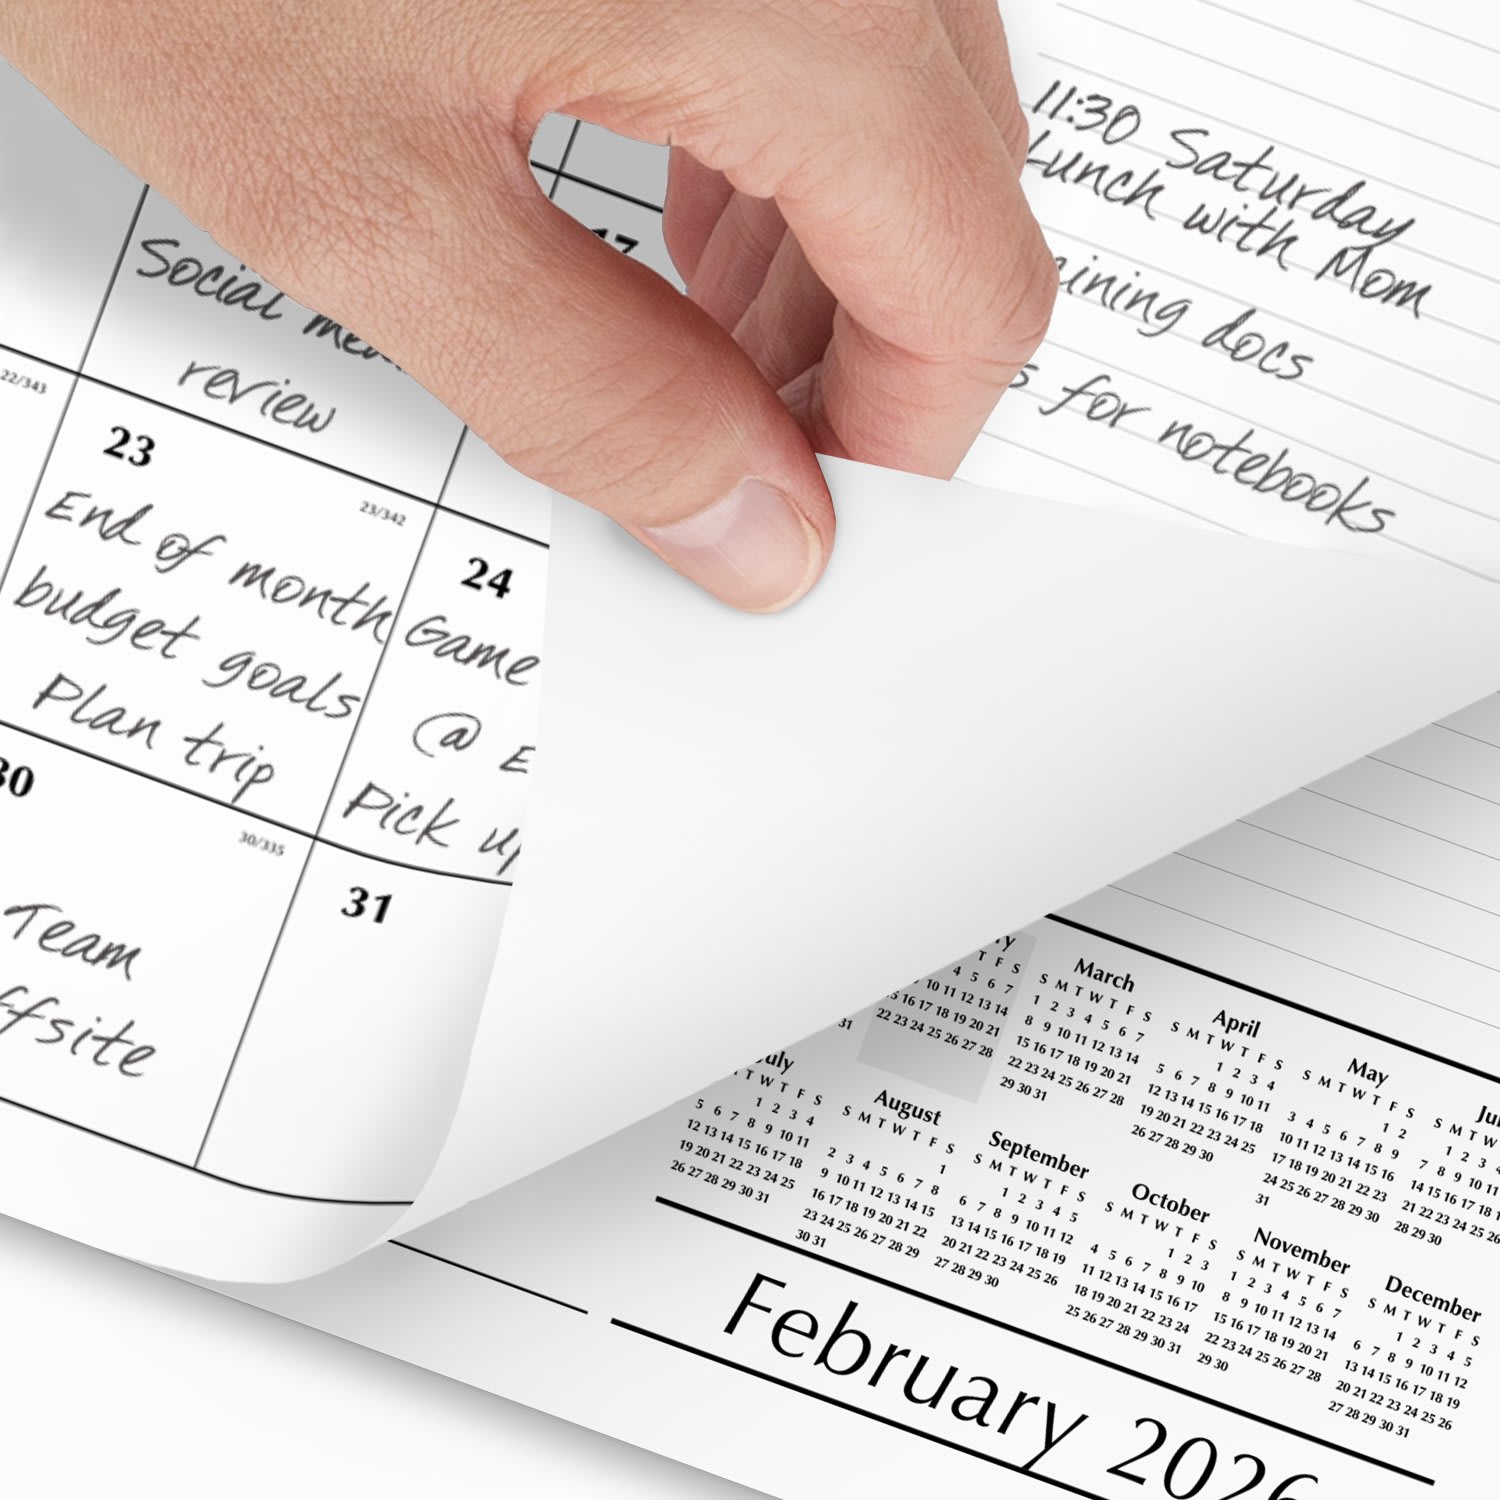 11:30 Saturday
Lunch with Mom
docs
for notebooks
17
Social
review
22/343
23
23/342
End of month
budget goals
Plan trip
24
Game
@
Pick up
30
30/335
Team
31
T F S
4 5 6 7
10 11 12 13 14
16 17 18 19 20 21
22 23 24 25 26 27 28
March
S M T W T F S
1 2 3 4 5 6 7
8 9 10 11 12 13 14
15 16 17 18 19 20 21
22 23 24 25 26 27 28
29 30 31
April
S M T W T F S
1 2 3 4
5 6 7 8 9 10 11
12 13 14 15 16 17 18
19 20 21 22 23 24 25
26 27 28 29 30
May
S M T W T F S
1 2
3 4 5 6 7 8 9
10 11 12 13 14 15 16
17 18 19 20 21 22 23
24 25 26 27 28 29 30
31
S M T W
1 2 3 4
7 8 9 10 11
14 15 16 17 18
21 22 23 24 25
28 29 30
31
July
T W T F S
1 2 3 4
5 6 7 8 9 10 11
12 13 14 15 16 17 18
19 20 21 22 23 24 25
26 27 28 29 30 31
August
S M T W T F S
1
2 3 4 5 6 7 8
9 10 11 12 13 14 15
16 17 18 19 20 21 22
23 24 25 26 27 28 29
30 31
September
S M T W T F S
1 2 3 4 5
6 7 8 9 10 11 12
13 14 15 16 17 18 19
20 21 22 23 24 25 26
27 28 29 30
October
S M T W T F S
1 2 3
4 5 6 7 8 9 10
11 12 13 14 15 16 17
18 19 20 21 22 23 24
25 26 27 28 29 30 31
November
S M T W T F S
1 2 3 4 5 6 7
8 9 10 11 12 13 14
15 16 17 18 19 20 21
22 23 24 25 26 27 28
29 30
December
S M T W T F S
1 2 3 4 5
6 7 8 9 10 11 12
13 14 15 16 17 18 19
20 21 22 23 24 25 26
27 28 29 30 31
February 2026